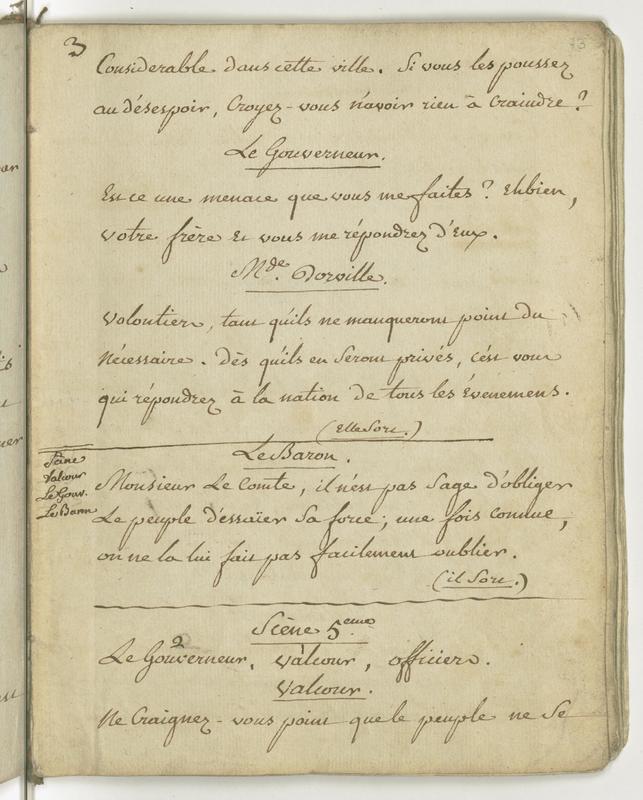 3
73
Considerable dans cette ville. Si vous les poussez
au désespoir, Croyez-vous n'avoir rien à Craindre?
Le Gouverneur.
Est ce une menace que vous me faites? Ehbien,
votre frère Et vous me répondrez d'Eux.
Mde. Dorville.
volontiers, tant qu'ils ne manqueront point du
nécessaire. Dès qu'ils en Seront privés, c'est vous
qui répondrez à la nation de tous les Évenemens.
(Elle Sort.)
Scène
Valcour
Le Gouv.
Le Baron
Le Baron.
Monsieur Le Comte, il n'est pas Sage d'obliger
Le peuple d'essaïer Sa force; une fois connue,
on ne la lui fait pas facilement oublier.
(il Sort.)
Scène 5eme.
2
Le Gouverneur, valcour, officiers.
Valcour.
Ne Craignez-vous point que le peuple ne Se